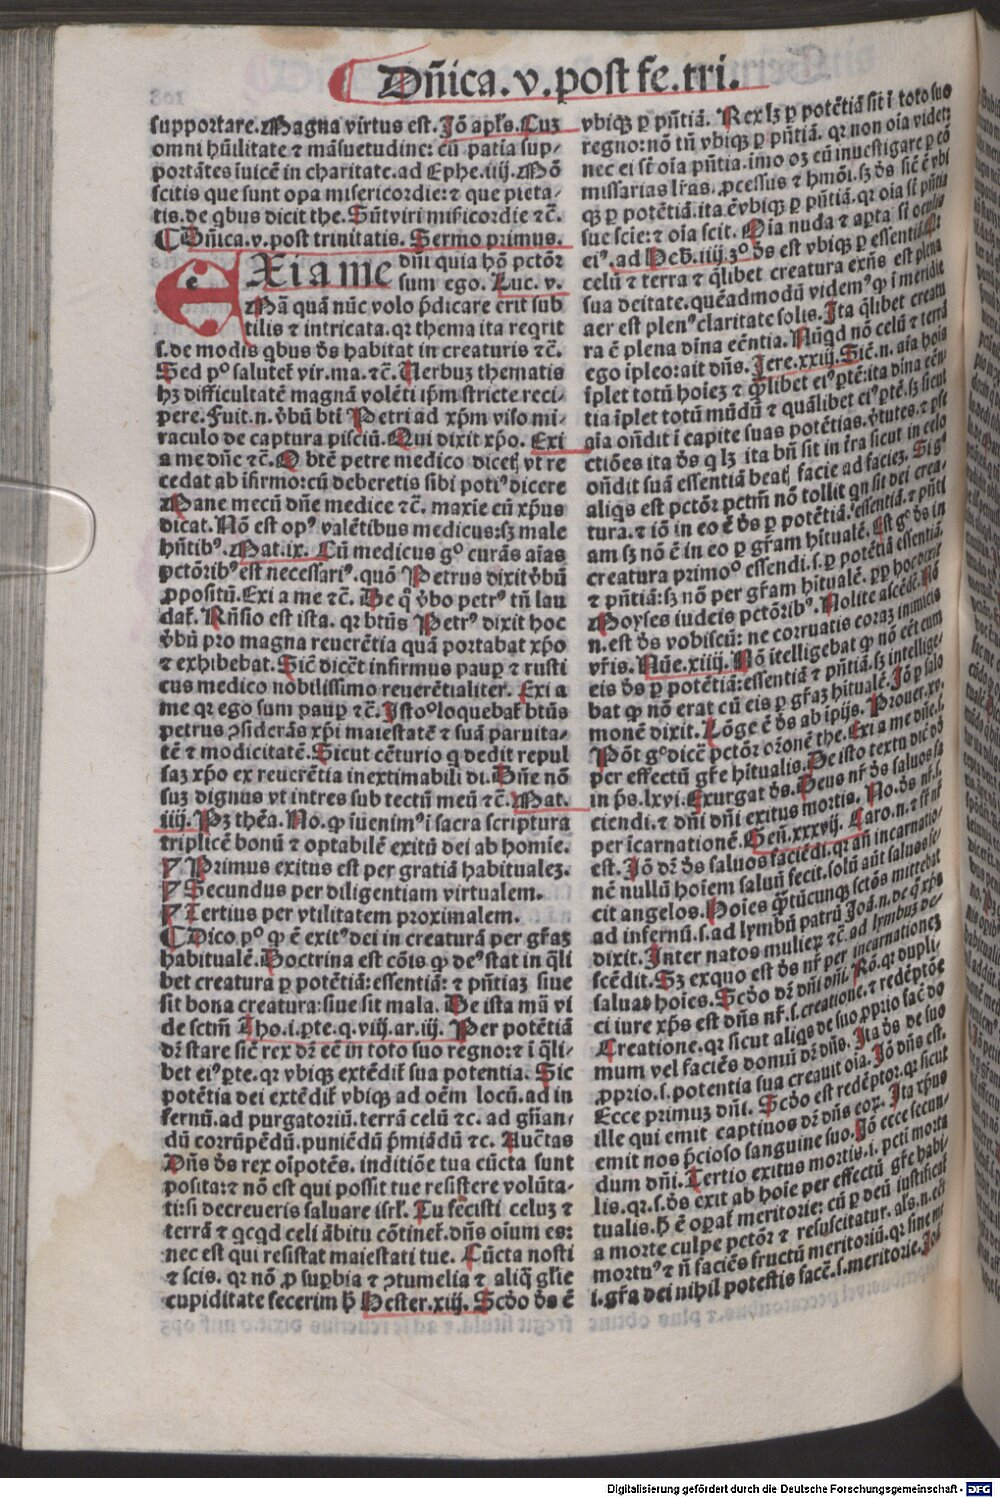 Dn̄ica.v.post fe.tri.
supportare.Magna virtus est. Jō apl's.Cuȝ
omni hūilitate ⁊ māsuetudine: cū patia sup-
portātes iuicē in charitate.ad Ephe.iiij.Mō
scitis que sunt opa misericordie: ⁊ que pieta-
tis.de qbus dicit the.Sūt viri mīsicordie ⁊c̄.
Dn̄ica.v.post trinitatis. Sermo primus.
EXi a me dn̄i quia hō pctōr
sum ego. Luc. v.
Mā quā nūc volo p̄dicare erit sub
tilis ⁊ intricata.qꝛ thema ita reqrit
s.de modis qbus ds̄ habitat in creaturis ⁊c̄.
Sed pº salutet̄ vir.ma.⁊c̄. Uerbuȝ thematis
hȝ difficultatē magnā volēti ip̄m stricte reci-
pere.Fuit.n.v̄bū bt̄i Petri ad xp̄m viso mi-
raculo de captura pisciū.Qui dixit xp̄o. Exi
a me dn̄e ⁊c̄.O bt̄e petre medico dicet̄ vt re
cedat ab īfirmo:cū deberetis sibi potiꝰ dicere
Mane mecū dn̄e medice ⁊c̄. maxie cū xp̄us
dicat.Nō est opꝰ valētibus medicus:sȝ male
hn̄tibꝰ.Mat.ix. Cū medicus gº curās aīas
pctōribꝰ est necessariꝰ.quō Petrus dixit v̄bū
ꝓpositū.Exi a me ⁊c̄. De q̄ v̄bo petrꝰ tn̄ lau
dat̄. Rn̄sio est ista. qꝛ bt̄us Petrꝰ dixit hoc
v̄bū pro magna reuerētia quā portabat xp̄o
⁊ exhibebat.Sic̄ dicēt infirmus paup ⁊ rusti
cus medico nobilissimo reuerētialiter. Exi a
me qꝛ ego sum paup ⁊c̄.Istoº loquebat̄ bt̄us
petrus ꝯsiderās xp̄i maiestatē ⁊ suā paruita-
tē ⁊ modicitatē.Sicut cēturio q dedit repul
saȝ xp̄o ex reuerētia inextimabili di.Dn̄e nō
suȝ dignus vt intres sub tectū meū ⁊c̄.Mat.
iiij.Pȝ thēa.No.ꝙ īuenimꝰ ī sacra scriptura
triplicē bonū ⁊ optabilē exitū dei ab homīe.
Primus exitus est per gratiā habitualeȝ.
Secundus per diligentiam virtualem.
Tertius per vtilitatem proximalem.
Dico pº ꝙ ē exitꝰ dei in creaturā per gr̄aȝ
habitualē.Doctrina est cōis ꝙ deꝰ stat in q̄li
bet creatura p potētiā:essentiā: ⁊ pn̄tiaȝ siue
sit bona creatura:siue sit mala. De ista mā vi
de sctm̄ Tho.i.pte.q.viij.ar.iij. Per potētiā
dr̄ stare sic̄ rex dr̄ eē in toto suo regno:⁊ ī q̄li-
bet eiꝰ pte.qꝛ vbiqȝ extēdit̄ sua potentia. Sic
potētia dei extēdit̄ vbiqȝ ad oēm locū.ad in
fernū.ad purgatoriū.terrā celū ⁊c. ad gn̄an-
dū corrūpēdū.puniēdū p̄miādū ⁊c. Auct̄as
Dn̄s ds̄ rex oīpotēs. inditiōe tua cūcta sunt
posita:⁊ nō est qui possit tue resistere volūta-
ti:si decreueris saluare isrl̄. Tu fecisti celuȝ ⁊
terrā ⁊ qcqd celi ābitu cōtinet̄.dn̄s oīum es:
nec est qui resistat maiestati tue. Cūcta nosti
⁊ scis. qꝛ nō ꝓ supbia ⁊ ꝯtumelia ⁊ aliq̄ gl̄ie
cupiditate fecerim h̄ Hester.xiij. Scd̄o ds̄ ē
vbiqȝ p pn̄tiā. Rex lȝ p potētiā sit ī toto suo
regno:nō tn̄ vbiqȝ p pn̄tiā. qꝛ non oīa videt:
nec ei st̄ oīa pn̄tia.īmo oȝ eū inuestigare p eō
missarias lr̄as.ꝓcessus ⁊ hmōi.sȝ ds̄ sic̄ ē vbi
qȝ p potētiā.ita ē vbiqȝ p pn̄tiā.qꝛ oīa st̄ pn̄tia
sue scie:⁊ oīa scit. Oīa nuda ⁊ apta st̄ oculis
eiꝰ.ad Heb.iiij 3º ds̄ est vbiqȝ p essentiā.Et
celū ⁊ terra ⁊ q̄libet creatura exn̄s est plena
sua deitate.quēadmodū videmꝰ ꝙ ī meridie
aer est plenꝰ claritate solis.Ita q̄libet creatu
ra ē plena dīna eēntia. Nūqd nō celū ⁊ terrā
ego īpleo:ait dn̄s. Jere.xxiij.Sic̄.n.aīa hoīs
īplet totū hoieȝ ⁊ q̄libet eiꝰ ptē:ita dīna eēn
tia īplet totū mūdū ⁊ quālibet eiꝰ ptē.sȝ sicut
aīa on̄dit ī capite suas potētias.v̄tutes.⁊ pfe
ctiōes ita ds̄ q lȝ ita bn̄ sit in tr̄a sicut in celo
on̄dit suā essentiā beatȝ facie ad facieȝ. Sigº
aliqs est pctōr pctm̄ nō tollit qn sit dei crea-
tura.⁊ iō in eo ē ds̄ p potētiā.essentiā.⁊ pn̄ti
am sȝ nō ē in eo p gr̄am hītualē.Est gº ds̄ in
creatura primoº essendi.s.p potētiā essentiā.
⁊ pn̄tiā:sȝ nō per gr̄am hītualē.ꝓp hoc dixit
Moyses iudeis pctōribꝰ.Nolite ascēdē.Nō
n.est ds̄ vobiscū: ne corruatis coraȝ inimicis
vr̄is.Nūe.xiiij.Nō ītelligebat ꝙ nō eēt cum
eis ds̄ p potētiā:essentiā ⁊ pn̄tiā.sȝ intellige-
bat ꝙ nō erat cū eis p gr̄aȝ hītualē.Jō p salo
monē dixit.Lōge ē ds̄ ab īpijs. Prouer.xv.
Pōt gº dicē pctōr oꝛonē the.Exi a me dn̄e.s.
per effectū gr̄e hītualis.De isto textu dic̄ dd̄
in ps̄.lxvi.Exurgat ds̄.Deus nr̄ ds̄ saluos fa
ciendi.⁊ dn̄i dn̄i exitus mortis. No.ds̄ nr̄.s.
per īcarnationē.Gen̄.xxxvij. Caro.n.⁊ fr̄ nr̄
est. Jō dr̄ ds̄ saluos faciēdi.qꝛ an̄ incarnatio-
nē nullū hoīem saluū fecit.solū aūt saluos fe-
cit angelos.Hoīes q̄tūcunqȝ sctōs mittebat
ad infernū.s.ad lymbū patrū Joā.n.de q xp̄s
dixit.Inter natos mulieꝝ ⁊c̄.ad lymbuȝ de-
scēdit.Sȝ exquo est ds̄ nr̄ per incarnationeȝ
saluat hoīes. Scd̄o dr̄ dn̄i dn̄i. Rō.qꝛ dupli-
ci iure xp̄s est dn̄s nr̄.s.creatione.⁊ redēptōe
Creatione.qꝛ sicut aliqs de suo ꝓprio fac̄ do
mum vel faciēs domū dr̄ dn̄s. Ita ds̄ de suo
ꝓprio.s.potentia sua creauit oīa. Jō dn̄s est.
Ecce primuȝ dn̄i. Scd̄o est redēptor.qꝛ sicut
ille qui emit captiuos dr̄ dn̄s eoꝝ. Ita xp̄us
emit nos p̄cioso sanguine suo.Jō ecce secun-
dum dn̄i.Tertio exitus mortis.i.pcti morta
lis.qꝛ.s.ds̄ exit ab hoīe per effectū gr̄e habi-
tualis.h̄ ē opat̄ meritorie: cū p deū iustificat̄
a morte culpe pctōr ⁊ resuscitatur. als̄.n.eēt
mortuꝰ ⁊ n̄ faciēs fructū meritoriū.qꝛ sine me
i.gr̄a dei nihil potestis facē.s.meritorie.Joā
Digitalisierung gefördert durch die Deutsche Forschungsgemeinschaft - DFG